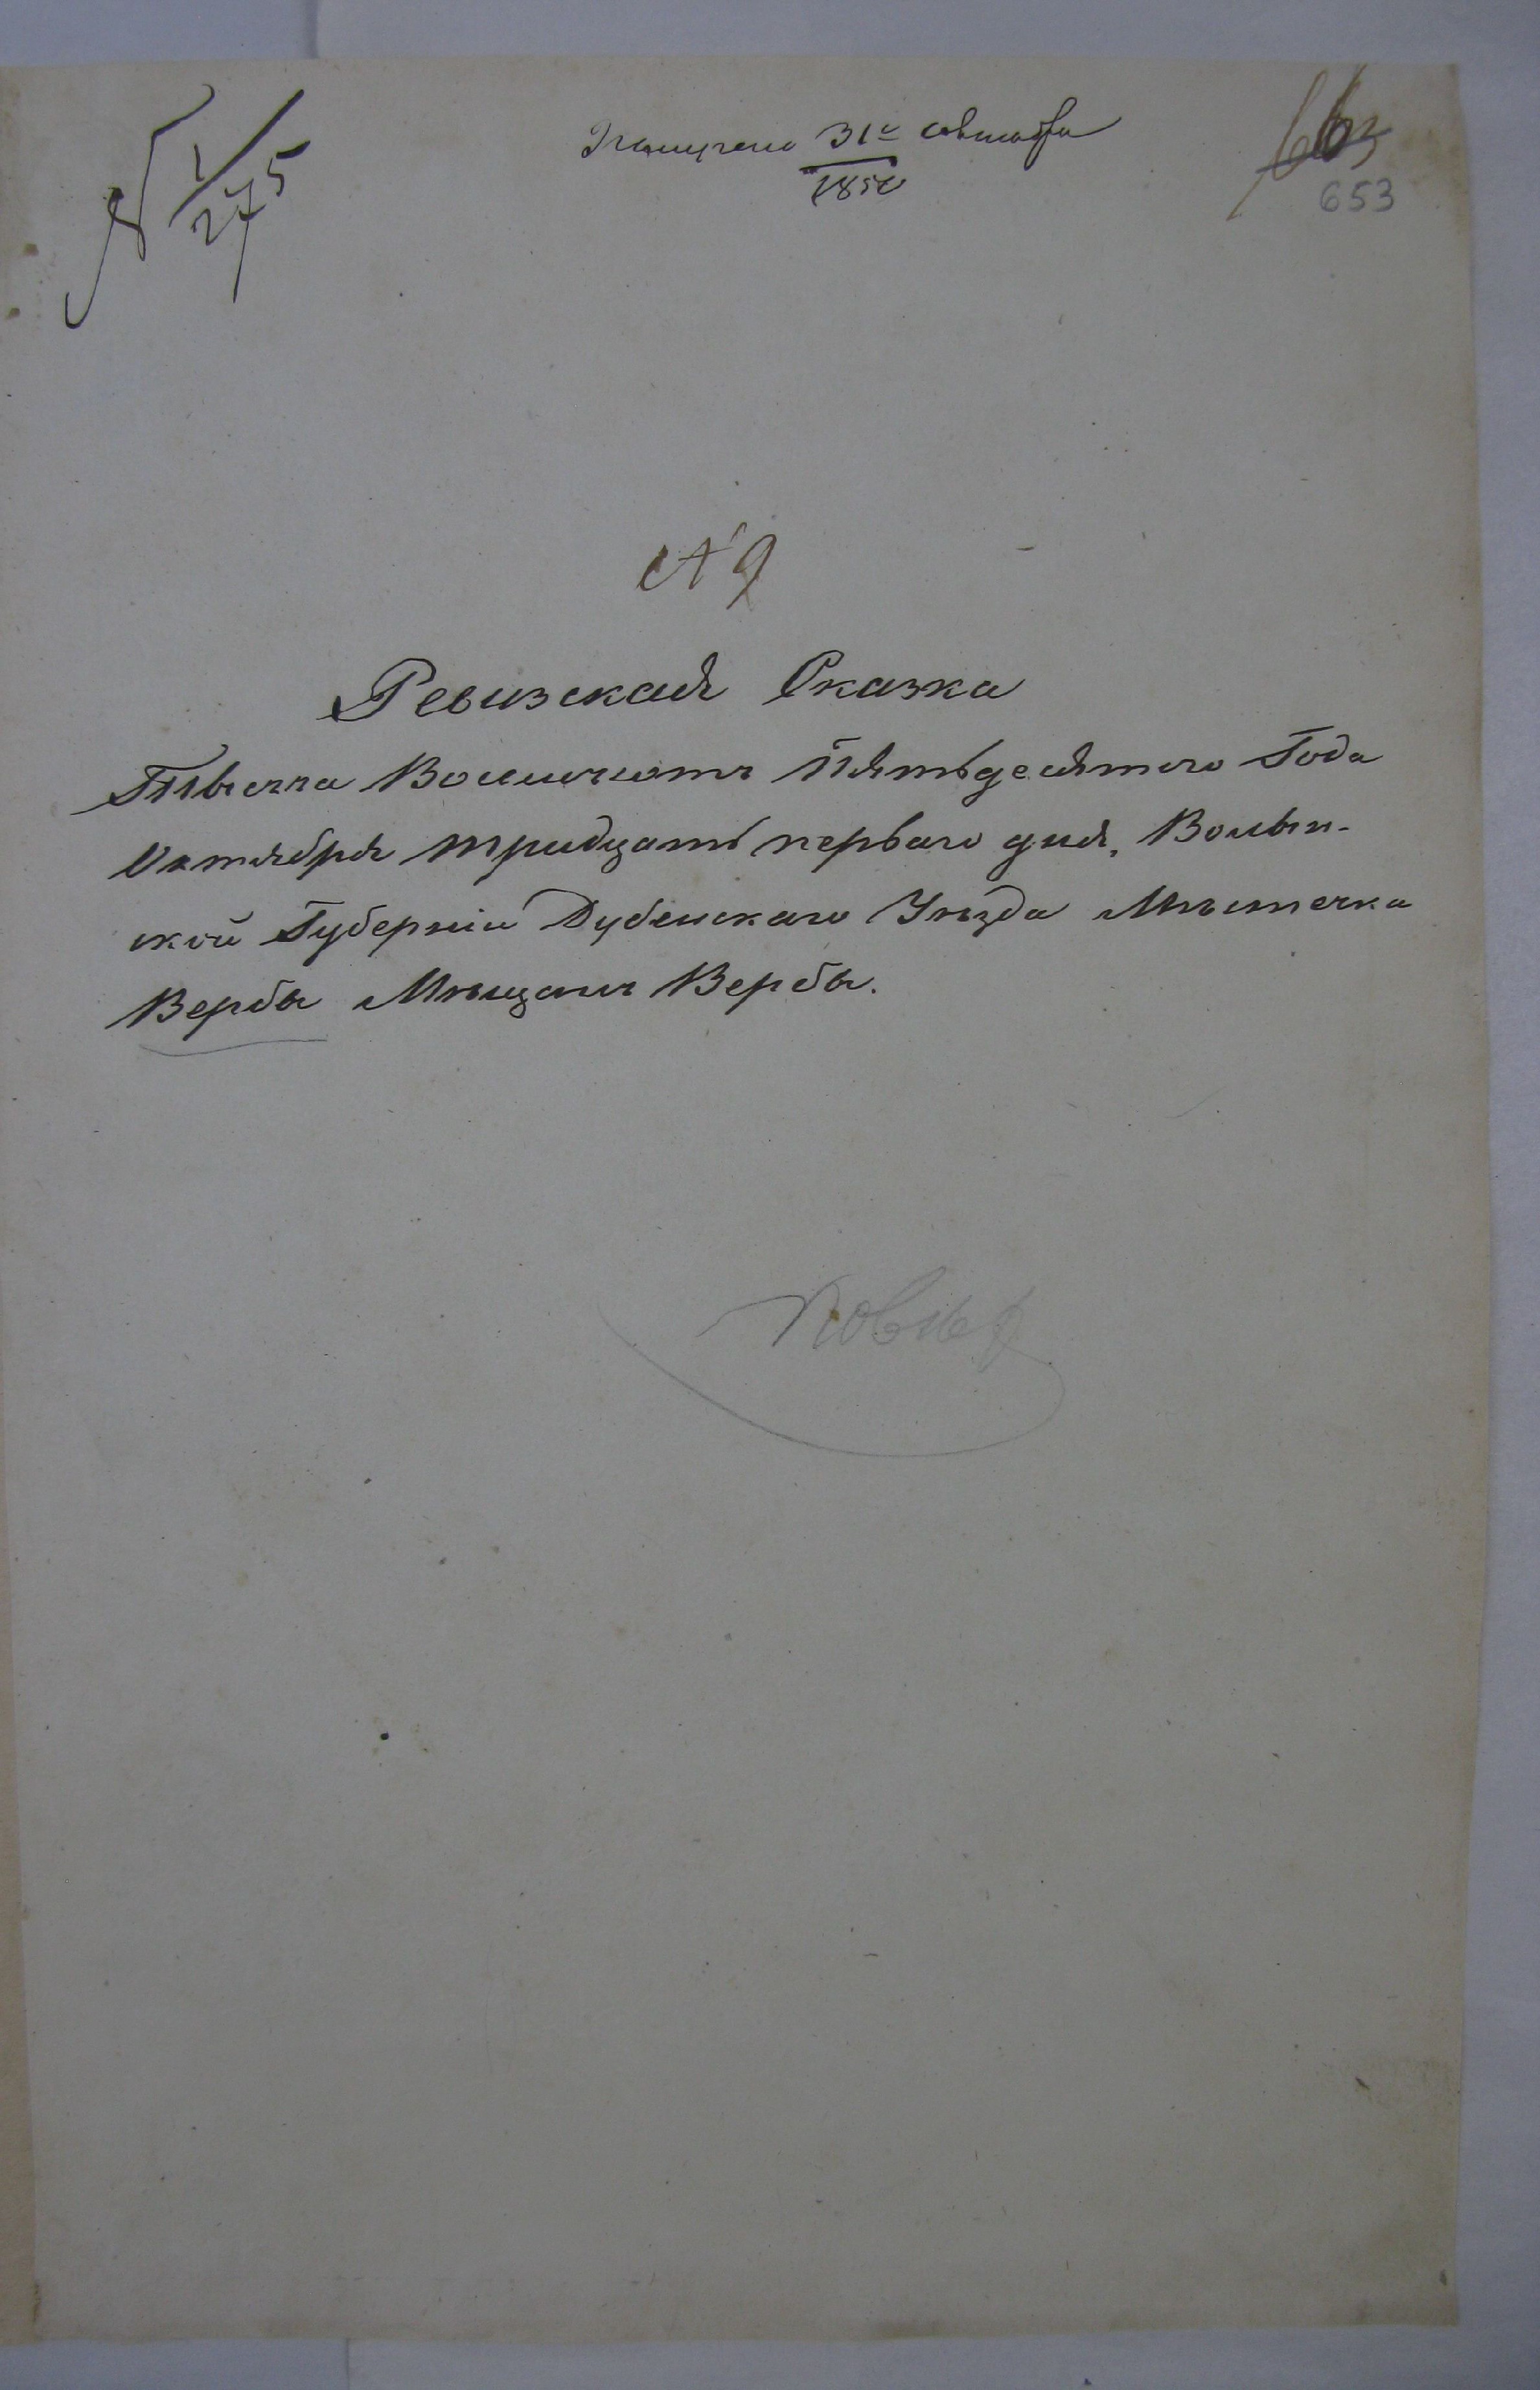 № 1/275
Получено 31го октября
1850
653
№ 9
Ревизская Сказка
Тысяча Восемьсотъ Пятьдесятого Года
Октября тридцать перваго дня, Волын-
ской Губерніи Дубенскаго Уѣзда Мѣстечка
Вербы Мѣщанъ Вербы.